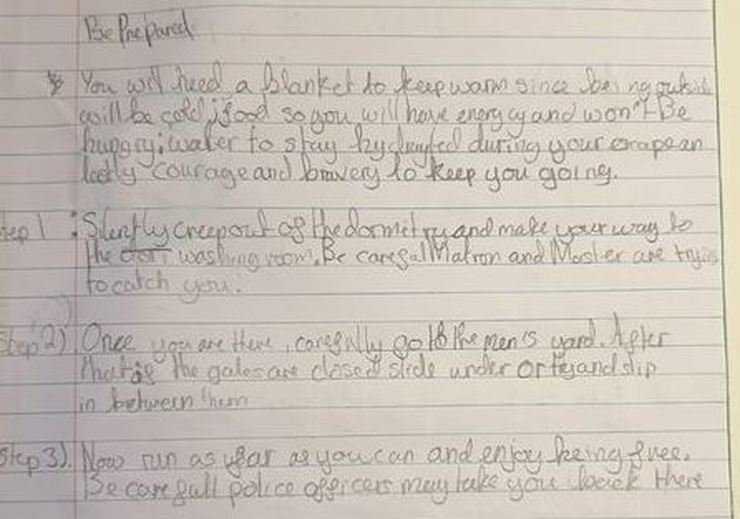 Be Prepared
You will need a blanket to keep warm since being outside
will be cold; food so you will have energy and won't Be
hungry; water to stay hydrated during your
lastly courage and bravery to keep you going.
Step 1 : Silently creep out of the dormetry and make your way to
the washing room. Be carefal Matron and Master are trying
to catch you.
Step 2) Once you are there, carefully go to the men's yard. After
that if the gates are closed slide under or try and slip
in between them
Step 3). Now run as far as you can and enjoy being free.
Be carefull police officers may take you back there